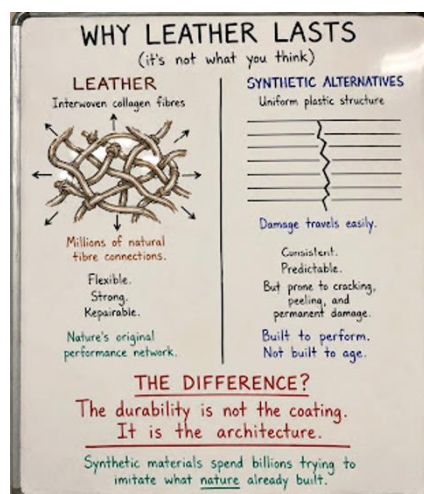 WHY LEATHER LASTS
(it's not what you think)
LEATHER
Interwoven collagen fibres
Millions of natural
fibre connections.
Flexible.
Strong.
Repairable.
Nature's original
performance network.
SYNTHETIC ALTERNATIVES
Uniform plastic structure
Damage travels easily.
Consistent.
Predictable.
But prone to cracking,
peeling, and
permanent damage.
Built to perform.
Not built to age.
THE DIFFERENCE?
The durability is not the coating.
It is the architecture.
Synthetic materials spend billions trying to
imitate what nature already built.